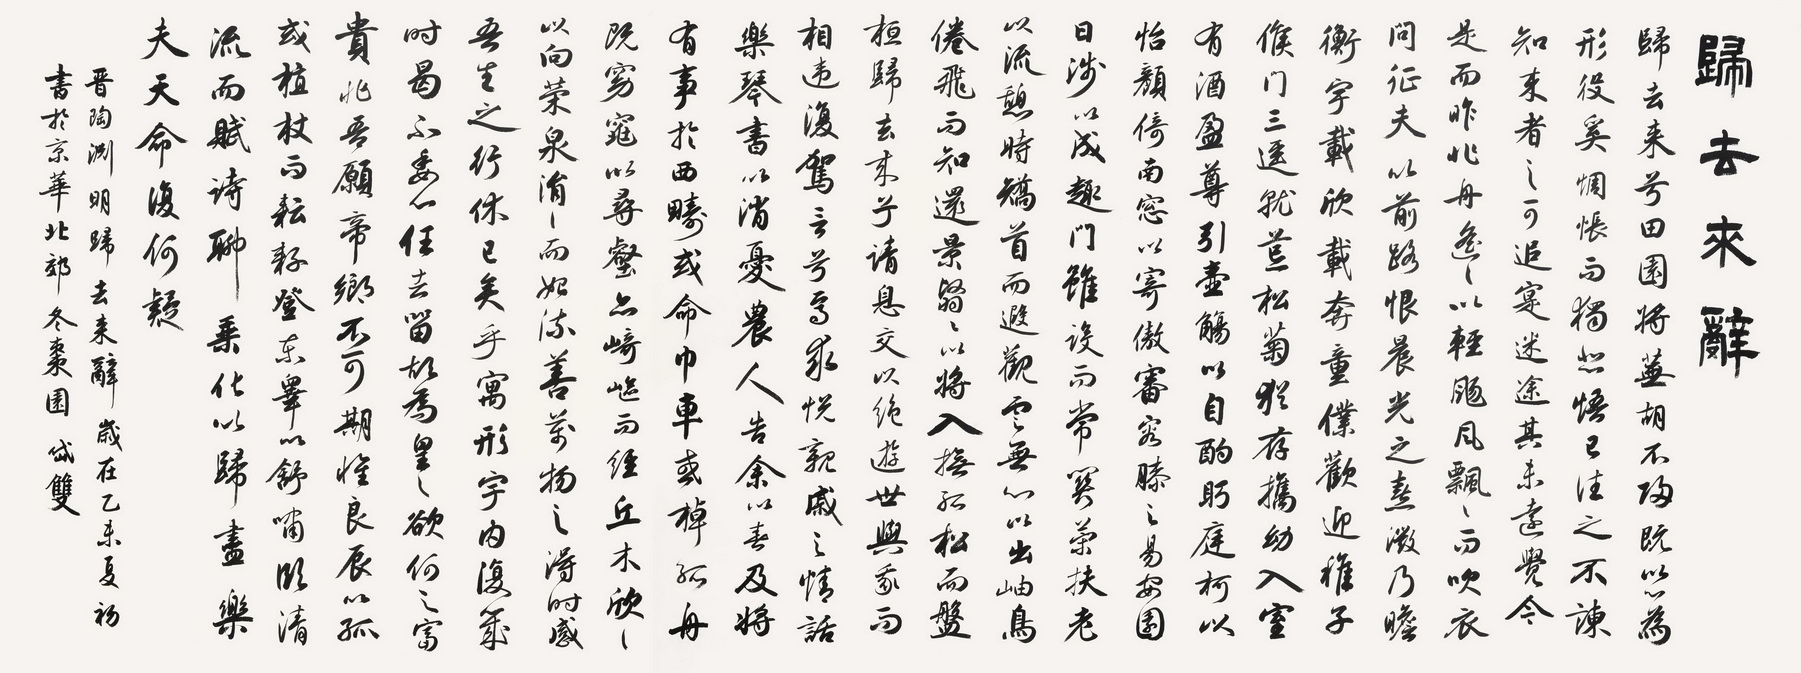 歸去來辭
歸去来兮田園将蕪胡不歸既以心為
形役奚惆悵而獨悲悟已往之不諫
知来者之可追寔迷途其未遠覺今
是而昨非舟遙々以輕颺风飄々而吹衣
问征夫以前路恨晨光之熹微乃瞻
衡宇載欣載奔童僕歡迎稚子
候门三逕就荒松菊猶存攜幼入室
有酒盈尊引壺觴以自酌眄庭柯以
怡顏倚南窓以寄傲審容膝之易安園
日涉以成趣门雖设而常関策扶老
以流憩時矯首而遐觀雲無心以出岫鳥
倦飛而知還景翳々以将入撫孤松而盤
桓歸去来兮请息交以绝遊世與我而
相违復駕言兮焉求悦親戚之情話
樂琴書以消憂農人告余以春及将
有事於西疇或命巾車或棹孤舟
既窈窕以尋壑亦崎嶇而經丘木欣々
以向荣泉涓々而始流善萬物之得时感
吾生之行休已矣乎寓形宇内復幾
时曷不委心任去留胡為皇々欲何之富
貴非吾願帝鄉不可期懷良辰以孤
或植杖而耘耔登东皋以舒嘯临清
流而賦诗聊乘化以歸盡樂
夫天命復何疑
晋陶渊明歸去来辭歲在乙未夏初
書於京華北郊冬棗園 岱雙